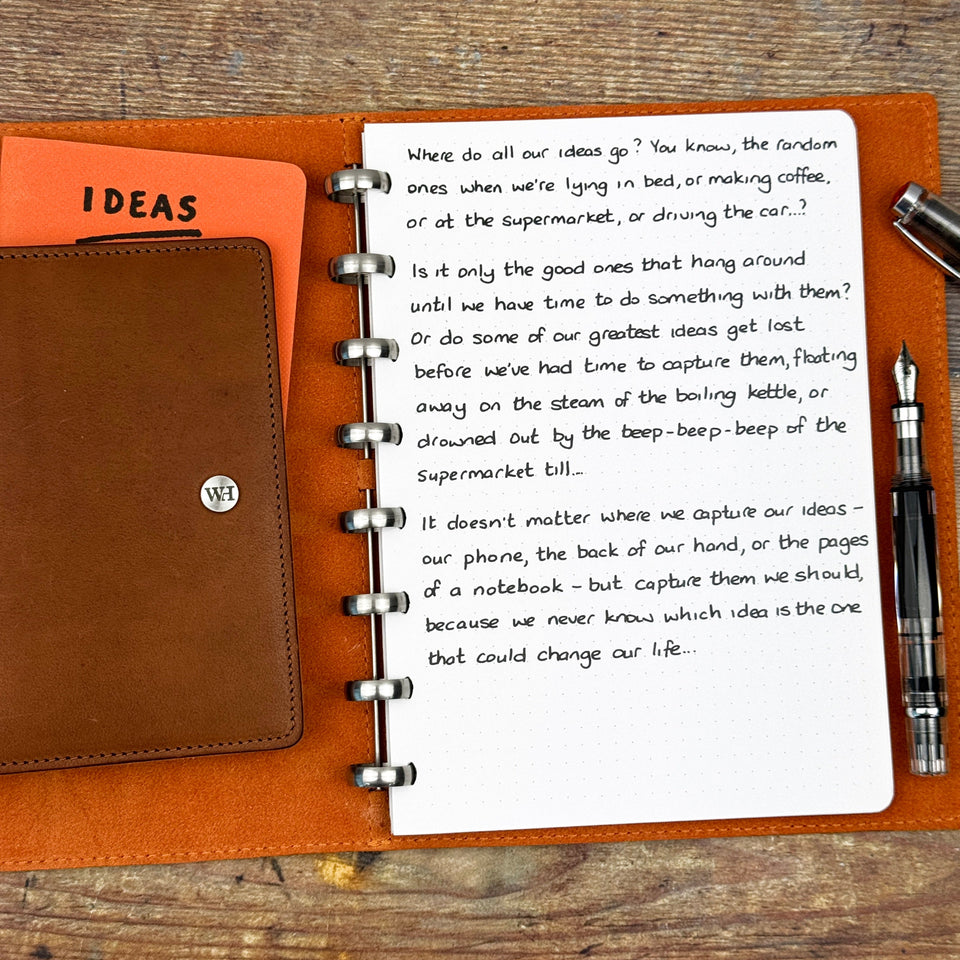 IDEAS
WH
Where do all our ideas go? You know, the random
ones when we're lying in bed, or making coffee,
or at the supermarket, or driving the car...?
Is it only the good ones that hang around
until we have time to do something with them?
Or do some of our greatest ideas get lost
before we've had time to capture them, floating
away on the steam of the boiling kettle, or
drowned out by the beep-beep-beep of the
supermarket till...
It doesn't matter where we capture our ideas -
our phone, the back of our hand, or the pages
of a notebook - but capture them we should,
because we never know which idea is the one
that could change our life...